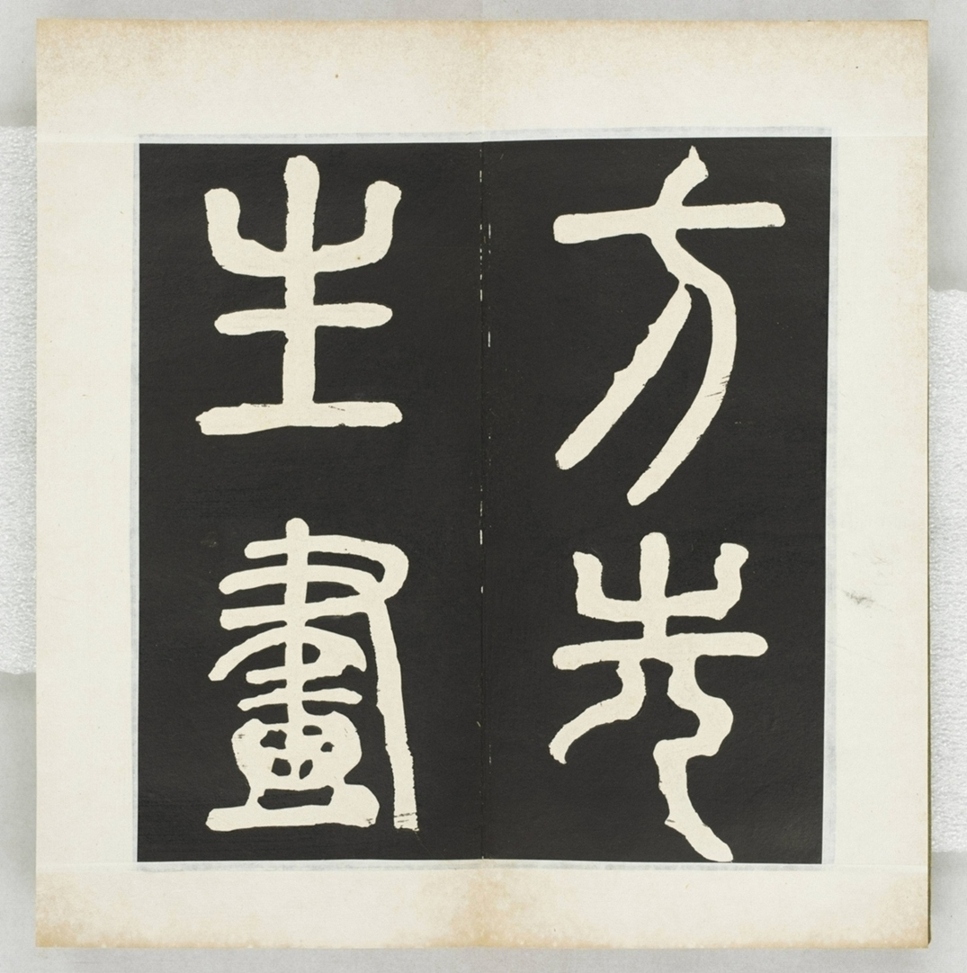 方先
生畫